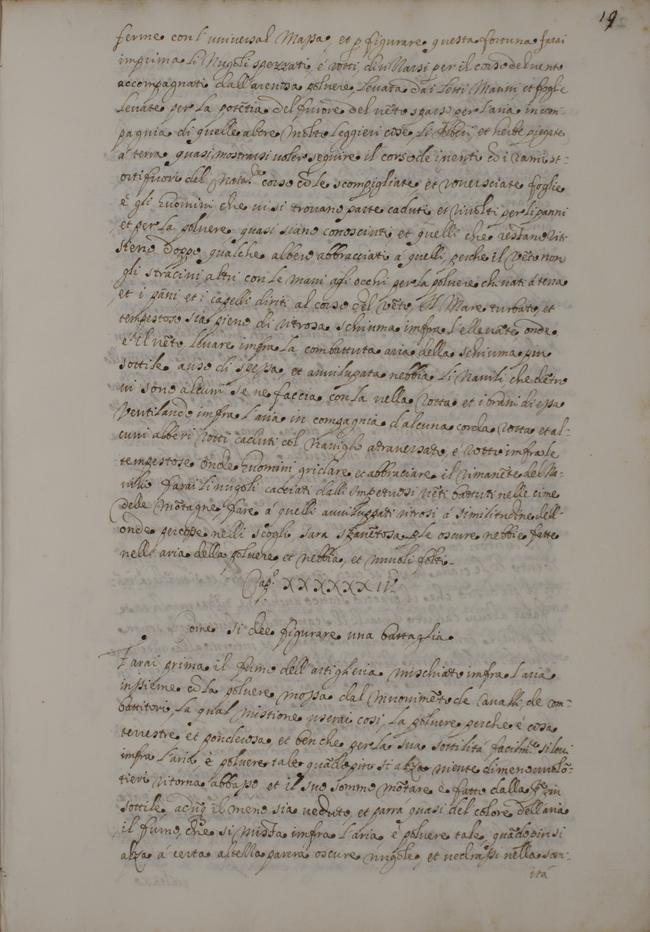 19
ferme con l'universal Massa, et p figurare questa fortuna farai
imprima li Nuvoli spezzati, e rotti, dirizzarsi per il corso del vento
accompagnati dall'arenosa polvere levata da i liti Marini, et foglie
levate per la potētia del furore del vēto sparse per l'aria in com-
pagnia di quelle altre molto leggieri cose li Alberi, et herbe piegate
a terra quasi mostrarsi voler seguire il corso de i venti cō i rami st-
orti fuori del Natal corso cō le scompigliate et rovesciate foglie
e gli huomini che vi si trovano parte caduti et rivolti per li panni
et per la polvere quasi siano conosciuti et quelli che restano rit-
ti sieno doppo qualche albero abbracciati a quelli, perche il vēto non
gli stracini altri con le mani a gli occhi per la polvere chinati a terra
et i pāni et i capelli diriti al corso del vēto. Il Mare turbato et
tempestoso sia pieno di ritrosa schiuma imfra l'ellevate onde
e il vēto levare imfra la combattuta aria della schiuma piu
sottile a uso di spessa et avviluppata nebbia li Navili che dētro
vi sono alcuni se ne faccia con la vella rotta et i brani di essa
ventilando imfra l'aria in compagnia d'alcuna corda rotta et al-
cuni alberi rotti caduti col naviglio atraversato e rotto imfra le
tempestose onde huomini gridare et abbracciare il rimanēte del Na-
vilio farai li nugoli cacciati dalli impetuosi vēti battuti nelle cime
delle mōtagne fare a quelli avviluppati ritrosi a similitudine dell-
onde percosse nelli scogli sara spavētosa le oscure nebbie fatte
nell'aria della polvere et nebbia, et nuvoli folti.
Cap. XXXXXXII.
Come si dee figurare una battaglia.
Farai prima il fumo dell'artigheria mischiato imfra l'aria
inssieme cō la polvere mossa dal movimēto de Cavalli, de com-
battitori, la qual mistione userai cosi la polvere perche e cosa
terrestre et ponderosa et ben che per la sua sottilità facilm.te si levi
imfra l'aria, e polvere tale quādo piu si alza niente di meno volō-
tieri ritorna abbasso et il suo sommo mōtare e fatto dalla piu
sottile adūq il meno sia veduto, et parrà quasi del colore dell'aria
il fumo, che si mista imfra l'aria e polvere tale quādo piu si
alza a certa altezza parera oscure nugole et vedrassi nella som-
ità